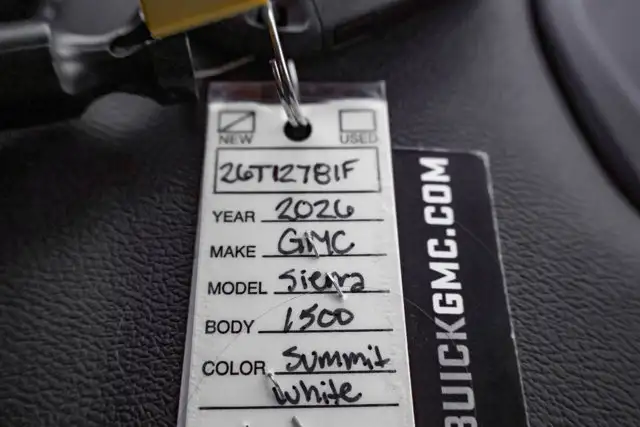 NEW USED
26T12781F
YEAR 2026
MAKE GMC
MODEL Sierra
BODY 1500
COLOR Summit
White
BUICKGMC.COM